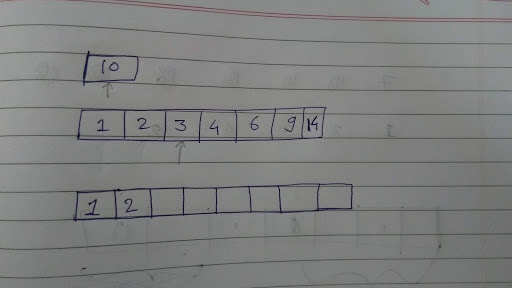 10
1 2 3 4 6 9 14
1 2